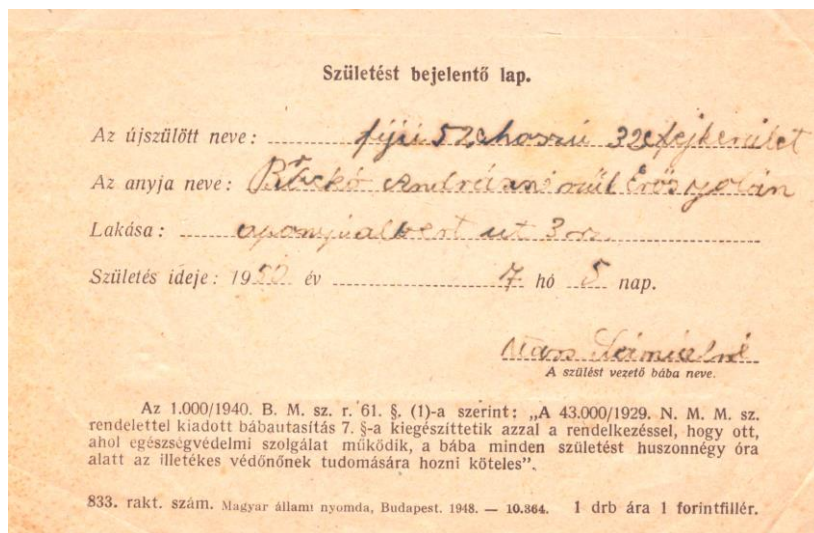 Születést bejelentő lap.
Az újszülött neve: fijú 52c hoszú 32c fejkerület
Az anyja neve: Andrásné szül Erős
Lakása: aponyialbert ut 3 sz
Születés ideje: 1950 év 7 hó 5 nap.
Sámuelné
A szülést vezető bába neve.
Az 1.000/1940. B. M. sz. r. 61. §. (1)-a szerint: „A 43.000/1929. N. M. M. sz.
rendelettel kiadott bábautasítás 7. §-a kiegészíttetik azzal a rendelkezéssel, hogy ott,
ahol egészségvédelmi szolgálat működik, a bába minden születést huszonnégy óra
alatt az illetékes védőnőnek tudomására hozni köteles”.
833. rakt. szám. Magyar állami nyomda, Budapest. 1948. — 10.364. 1 drb ára 1 forintfillér.